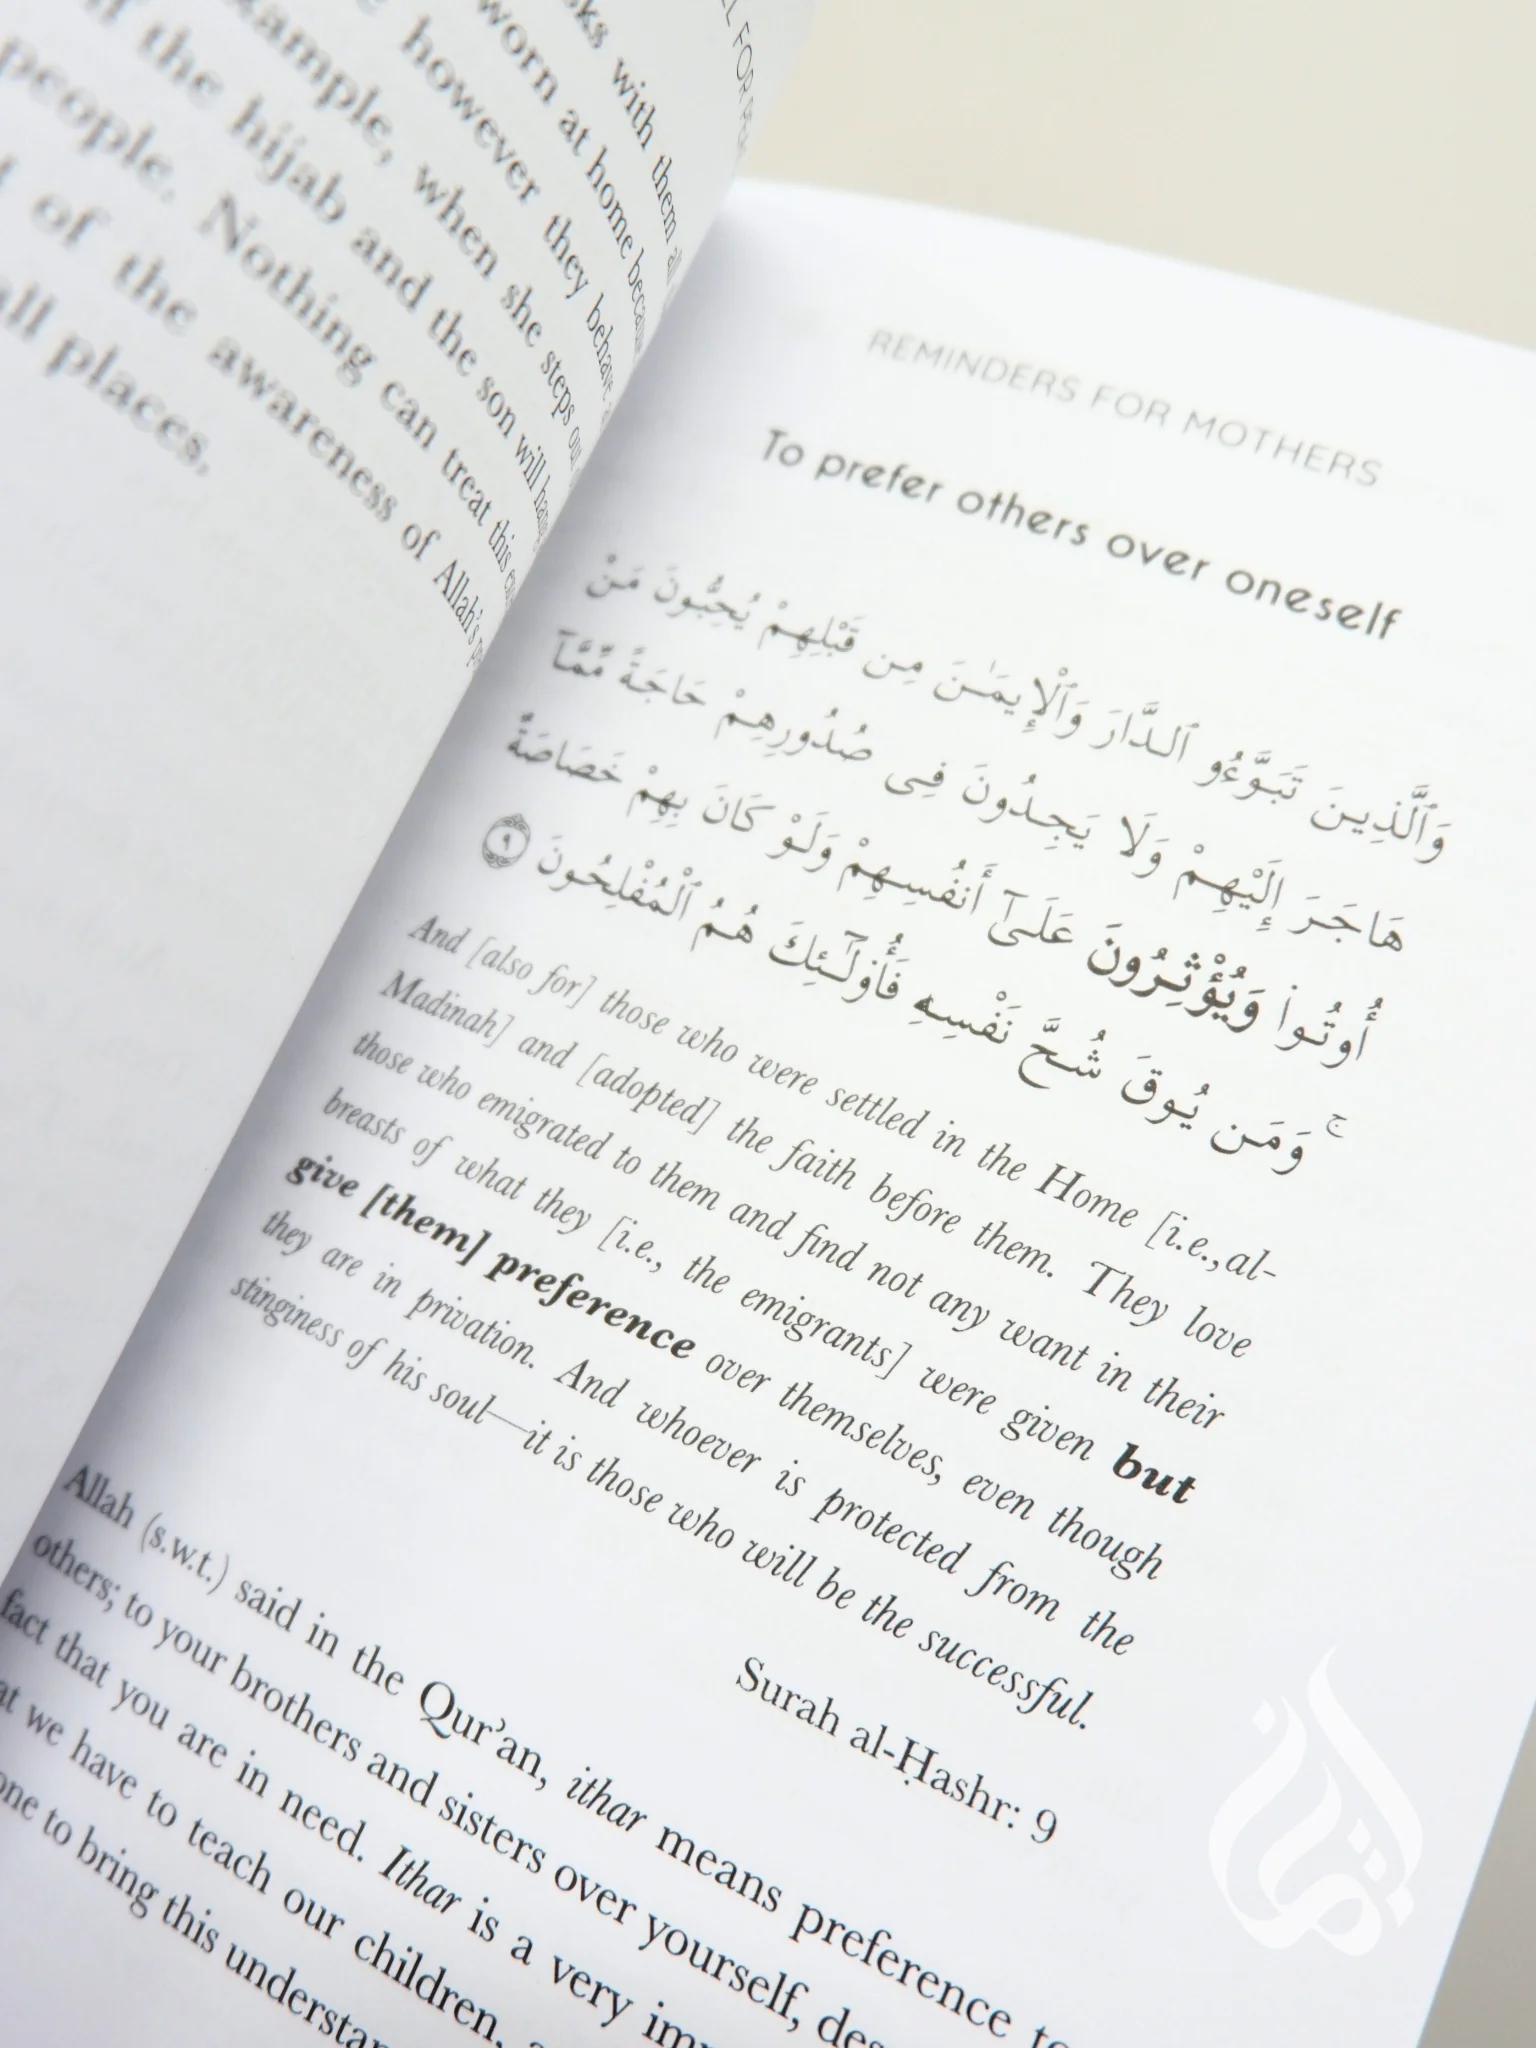 sks with them
worn at home
however they behave
example, when she steps
the hijab and the son will
people. Nothing can treat this
of the awareness of Allah's
all places,
REMINDERS FOR MOTHERS
To prefer others over oneself
وَٱلَّذِينَ تَبَوَّءُو ٱلدَّارَ وَٱلْإِيمَـٰنَ مِن قَبْلِهِمْ يُحِبُّونَ مَنْ
هَاجَرَ إِلَيْهِمْ وَلَا يَجِدُونَ فِى صُدُورِهِمْ حَاجَةً مِّمَّآ
أُوتُوا۟ وَيُؤْثِرُونَ عَلَىٰٓ أَنفُسِهِمْ وَلَوْ كَانَ بِهِمْ خَصَاصَةٌ
ۚ وَمَن يُوقَ شُحَّ نَفْسِهِۦ فَأُو۟لَـٰٓئِكَ هُمُ ٱلْمُفْلِحُونَ ٩
And [also for] those who were settled in the Home [i.e.,al-
Madinah] and [adopted] the faith before them. They love
those who emigrated to them and find not any want in their
breasts of what they [i.e., the emigrants] were given but
give [them] preference over themselves, even though
they are in privation. And whoever is protected from the
stinginess of his soul—it is those who will be the successful.
Surah al-Ḥashr: 9
Allah (s.w.t.) said in the Qur’an, ithar means preference to
others; to your brothers and sisters over yourself,
fact that you are in need. Ithar is a very
we have to teach our children,
one to bring this